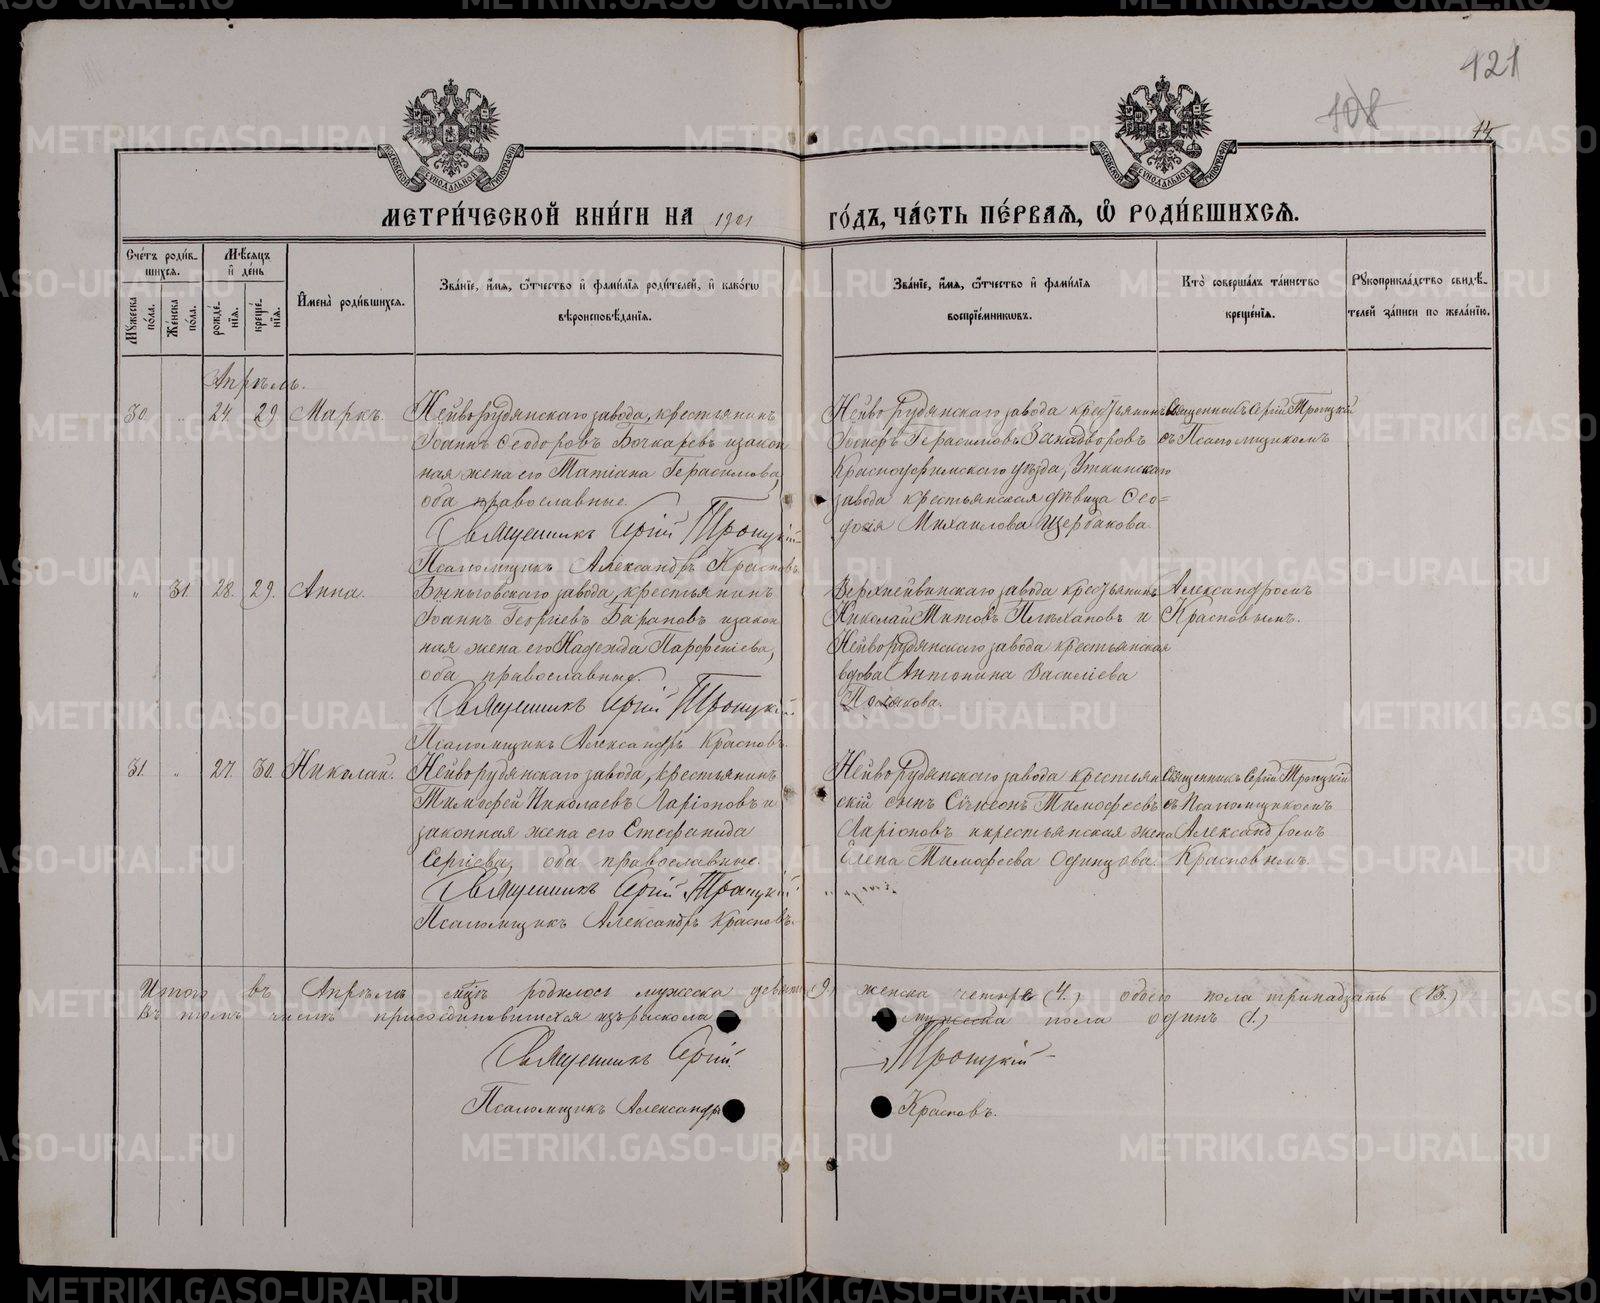 121
108
14
МЕТРИ́ЧЕСКОЙ КНИ́ГИ НА 1901 ГО́ДЪ, ЧА́СТЬ ПЕ́РВАѦ, Ѿ РОДИ́ВШИХСѦ.
Сче́тъ роди́в-
шихсѧ.
Мѣ́сѧцъ
и҆ де́нь
Мꙋжеска по́ла.
Же́нска по́ла.
рожде́-
нїѧ.
креще́-
нїѧ.
И҆мена̀ роди́вшихсѧ.
Зва́нїе, и҆́мѧ, ѻ҆́тчество и҆ фами́лїѧ роди́телей, и҆ како́гѡ
вѣроисповѣ́данїѧ.
Зва́нїе, и҆́мѧ, ѻ҆́тчество и҆ фами́лїѧ
воспрїе́мникѡвъ.
Кто̀ соверша́лъ та́инство
креще́нїѧ.
Рꙋкоприкла́дство свидѣ́-
телей за́писи по жела́нїю.
Апрѣль.
30. „ 24. 29. Маркъ.
Нейворудянскаго завода, крестьянинъ
Іоаннъ Ѳеодоровъ Бочкаревъ и закон
ная жена его Татіана Герасимова,
оба православные.
Священникъ Сергій Троицкій
Псаломщикъ Александръ Красновъ.
Нейворудянскаго завода крестьянинъ
Іосифъ Герасимовъ Занадворовъ
Красноуфимскаго уѣзда, Уткинскаго
завода крестьянская дѣвица Ѳео=
досія Михаилова Щербакова.
Священникъ Сергій Троицкій
съ Псаломщикомъ
„ 31. 28. 29. Анна.
Быньговскаго завода, крестьянинъ
Іоаннъ Георгіевъ Барановъ и закон
ная жена его Надежда Парфеніева,
оба православные.
Священникъ Сергій Троицкій
Псаломщикъ Александръ Красновъ.
Верхнейвинскаго завода крестьянинъ
Николай Титовъ Плѣхановъ и
Нейворудянскаго завода крестьянская
вдова Антонина Василіева
Полякова.
Александромъ
Красновымъ.
31. „ 27. 30. Николай.
Нейворудянскаго завода, крестьянинъ
Тимофей Николаевъ Ларіоновъ и
законная жена его Стефанида
Сергіева, оба православные.
Священникъ Сергій Троицкій
Псаломщикъ Александръ Красновъ.
Нейворудянскаго завода крестьян
скій сынъ Сѵмеонъ Тимофеевъ
Ларіоновъ и крестьянская жена
Елена Тимофеева Одинцова.
Священникъ Сергій Троицкій
съ Псаломщикомъ
Александромъ
Красновымъ.
Итого въ Апрѣлѣ м҃цѣ родилось мужеска девять (9.) женска четыре (4.) обоего пола тринадцать (13.)
Въ томъ числѣ присоединившихся изъ раскола мужеска пола одинъ (1.)
Священникъ Сергій Троицкій
Псаломщикъ Александръ Красновъ.
METRIKI.GASO-URAL.RU